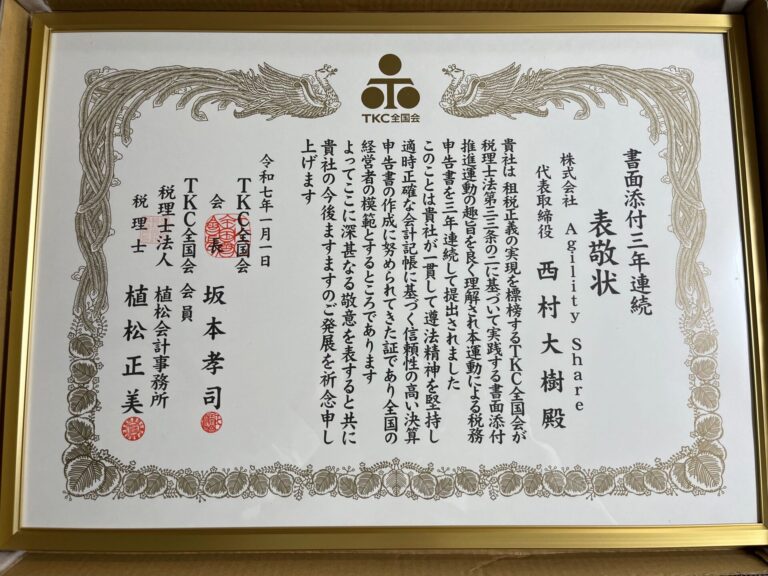 TKC全国会
書面添付三年連続
表敬状
株式会社 Agility Share
代表取締役 西村大樹 殿
貴社は 租税正義の実現を標榜するTKC全国会が
税理士法第三三条の二に基づいて実践する書面添付
推進運動の趣旨を良く理解され本運動による税務
申告書を三年連続して提出されました
このことは貴社が一貫して遵法精神を堅持し
適時正確な会計記帳に基づく信頼性の高い決算
申告書の作成に努められてきた証であり全国の
経営者の模範とするところであります
よってここに深甚なる敬意を表すると共に
貴社の今後ますますのご発展を祈念申し
上げます
令和七年一月一日
TKC全国会
会長 坂本孝司
TKC全国会 会員
税理士法人 植松会計事務所
税理士 植松正美